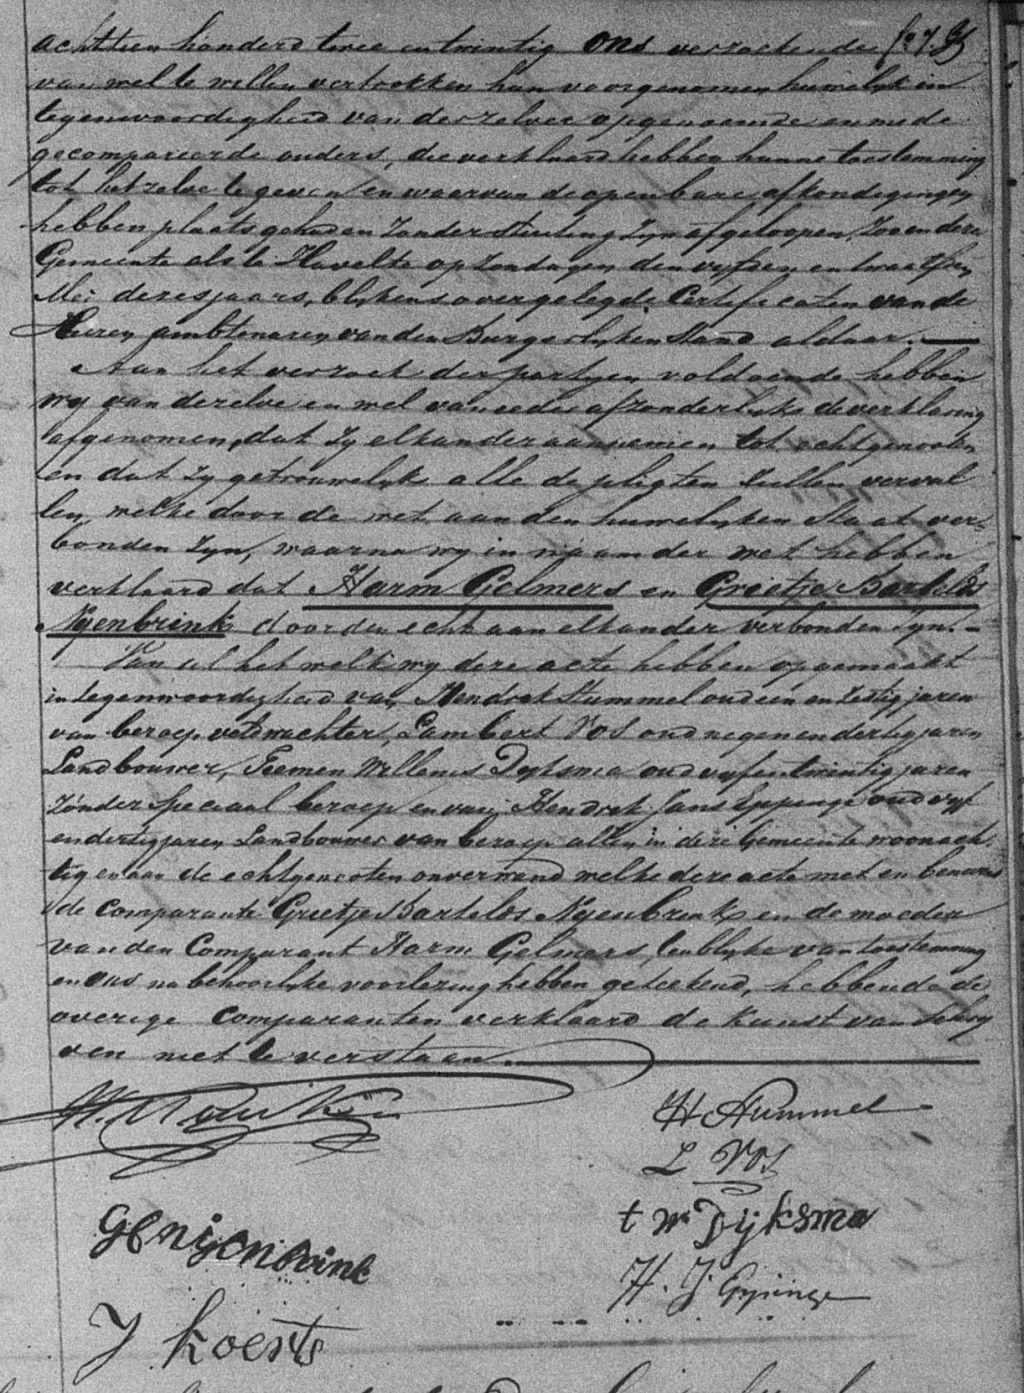 achttien honderd twee en twintig ons verzoekende
van wel te willen vertrokken hun voorgenomen huwelijk in
tegenwoordigheid van derzelver opgenoemde en mede
gecompareerde ouders, die verklaard hebben hunne toestemming
tot hetzelve te geven en waarvan de openbare afkondigingen
hebben plaats gehad en zonder stuiting zyn afgeloopen, zoo in deze
Gemeente als te Havelte op zondagen den vyfden en twaalfden
Mei dezes jaars, blykens overgelegde Certificaten van de
Heeren ambtenaren van den Burgerlyken Stand aldaar.
Aan het verzoek der partyen voldoende hebben
wy van dezelve en wel van eeder afzonderlyk de verklaring
afgenomen, dat zy elkander aannemen tot echtgenooten
en dat zy getrouwelyk alle de pligten zullen vervul
len, welke door de wet aan den huwelyken Staat ver-
bonden zyn, waarna wy in naam der wet hebben
verklaard dat Harm Gelmers en Greetje Bartelds
Nyenbrink door den echt aan elkander verbonden zyn.
Van al het welk wy deze acte hebben opgemaakt
in tegenwoordigheid van Hendrek Hummel oud een en zestig jaren
van beroep veldwachter, Lambert Vos oud negen en dertig jaren
Landbouwer, Teemen Willems Dyksma oud vyf en twintig jaren
zonder speciaal beroep en van Hendrek Jans Eppinge oud vyf
en dertig jaren Landbouwer van beroep allen in deze Gemeente woonach
tig en aan de echtgenooten onverwand welke deze acte met en benevens
de Comparante Greetje Bartelds Nyenbrink en de moeder
van den Comparant Harm Gelmers, ten blyke van toestemming
en ons na behoorlyke voorlezing hebben geteekend, hebbende de
overige Comparanten verklaard de kunst van schry
ven niet te verstaan.
H Hummel
L Vos
t w Dijksma
H. J. Eppinge
G B Nijenbrink
J Koerts